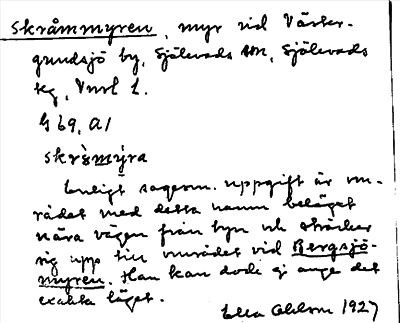 Skråmmyren, myr vid Väster-
grundsjö by, Själevads sn, Själevads
tg, Vnrl l.
G 69, A1
skrò̀mmýra
Enligt sagesm. uppgift är om-
rådet med detta namn beläget
nära vägen från byn och sträcker
sig upp till området vid Bergsjö-
myren. Han kan dock ej ange det
exakta läget.
Elsa Ohlson 1927